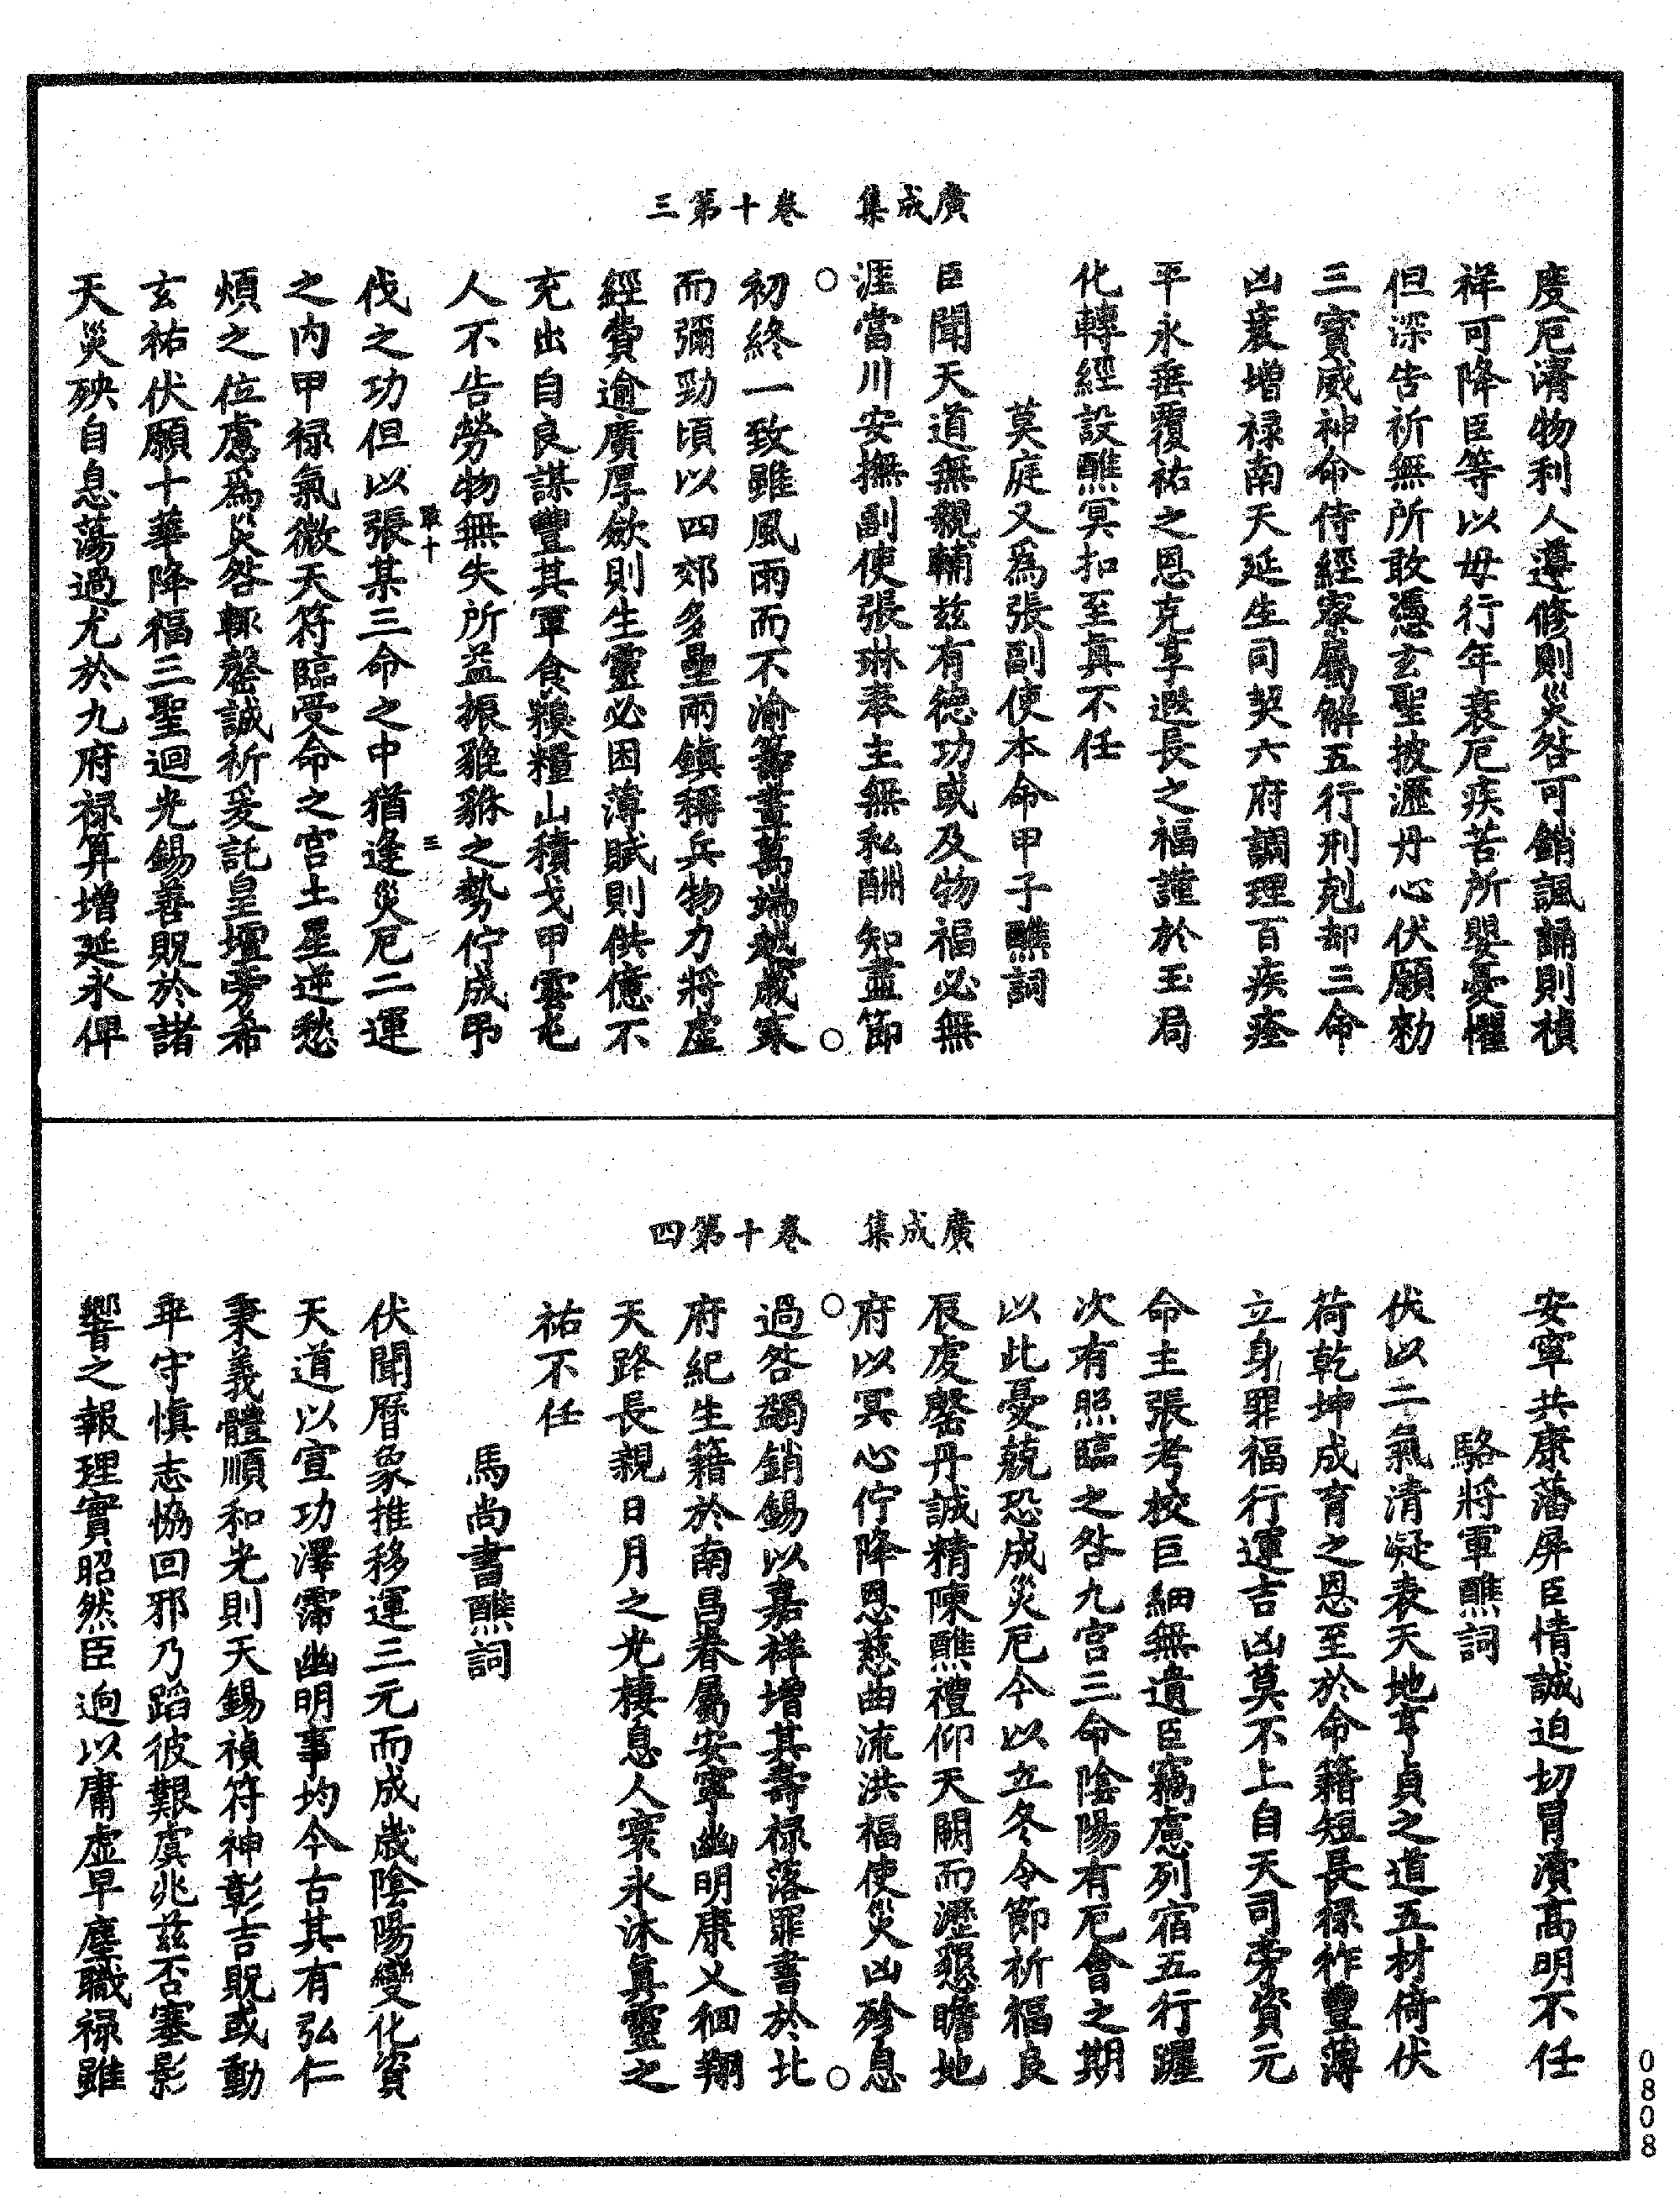 廣成集　卷十第三
度厄濟物利人遵修則災咎可銷諷誦則禎
祥可降臣等以毋行年衰厄疾苦所嬰憂懼
但深告祈無所敢憑玄聖披瀝丹心伏願勑
三寳威神命侍經寮屬解五行刑剋却三命
凶衰增禄南天延生司契六府調理百疾痊
平永垂覆祐之恩克享遐長之福謹於玉局
化轉經設醮冥扣至真不任
莫庭乂爲張副使本命甲子醮詞
臣聞天道無親輔兹有德功或及物福必無
涯當川安撫副使張琳奉主無私酬知盡節
初終一致雖風雨而不渝籌畫萬端越歲寒
而彌勁頃以四郊多壘兩鎮稱兵物力將虛
經費逾廣厚歛則生靈必困薄賦則供億不
充出自良謀豐其軍食糗糧山積戈甲雲屯
人不告勞物無失所益振貔貅之勢佇成弔
敢十　三
伐之功但以張某三命之中猶逢災厄二運
之内甲禄氣微天符臨受命之宫土星逆愁
煩之位慮爲災咎輙罄誠祈爰託皇壇旁希
玄祐伏願十華降福三聖迴光錫善貺於諸
天災殃自息蕩過尤於九府禄算增延永俾
廣成集　卷十第四
安寧共康藩屏臣情誠迫切冒瀆高明不任
駱將軍醮詞
伏以二氣清凝表天地亨貞之道五材倚伏
荷乾坤成育之恩至於命籍短長禄祚豐薄
立身罪福行運吉凶莫不上自天司旁資元
命主張考校巨細無遺臣竊慮列宿五行躔
次有照臨之咎九宫三命陰陽有厄會之期
以此憂兢恐成災厄今以立冬令節祈福良
辰虔罄丹誠精陳醮禮仰天闕而瀝懇瞻地
府以冥心佇降恩慈曲流洪福使災凶殄息
過咎蠲銷錫以嘉祥增其壽禄落罪書於北
府紀生籍於南昌眷屬安寧幽明康乂徊翔
天路長親日月之光棲息人寰永沐真靈之
祐不任
馬尚書醮詞
伏聞曆象推移運三元而成歲陰陽變化資
天道以宣功澤霈幽明事均今古其有弘仁
秉義體順和光則天錫禎符神彰吉貺或動
年守愼志恊回邪乃蹈彼艱虞兆兹否塞影
響之報理實昭然臣逈以庸虛早塵職禄雖
0808